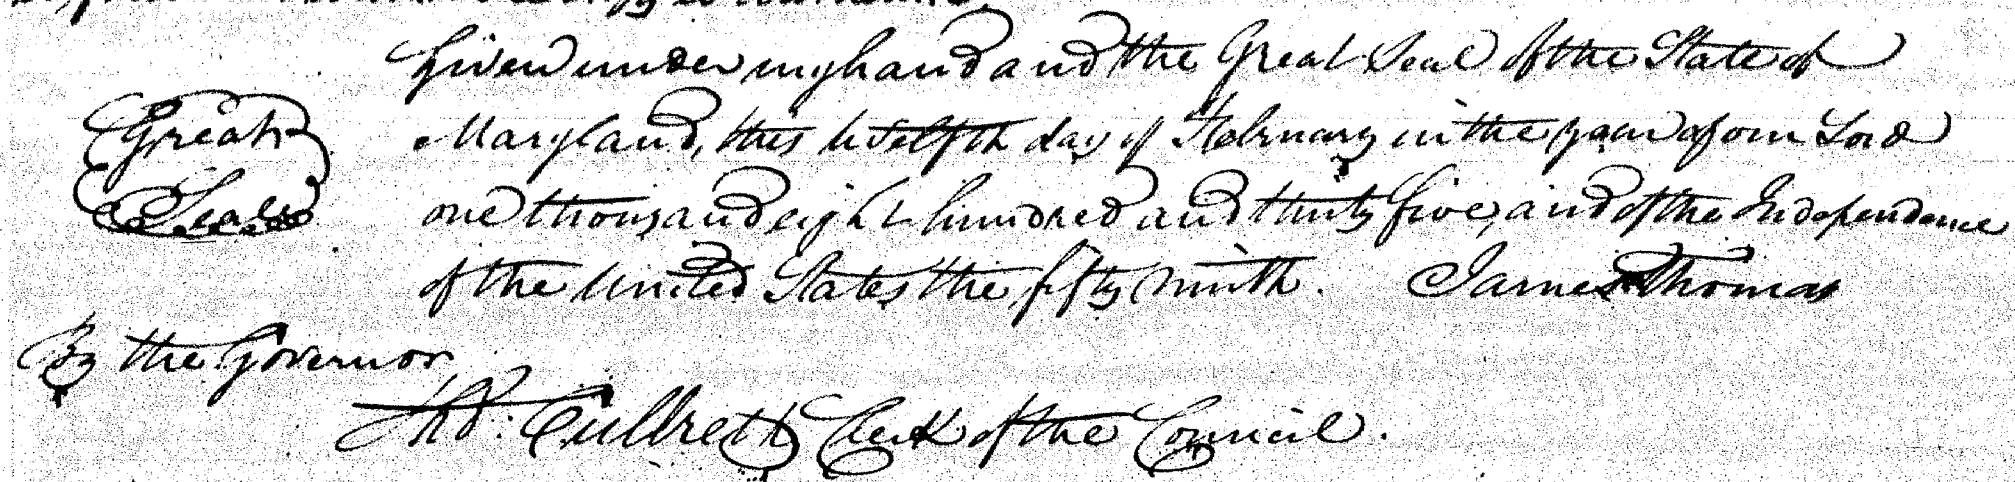 Given under my hand and the Great Seal of the State of
Great
Maryland, this twelfth day of February in the year of our Lord
Seal
one thousand eight hundred and thirty five, and of the Independence
of the United States the fifty ninth. James Thomas
By the Governor
Thos. Culbreth Clerk of the Council.